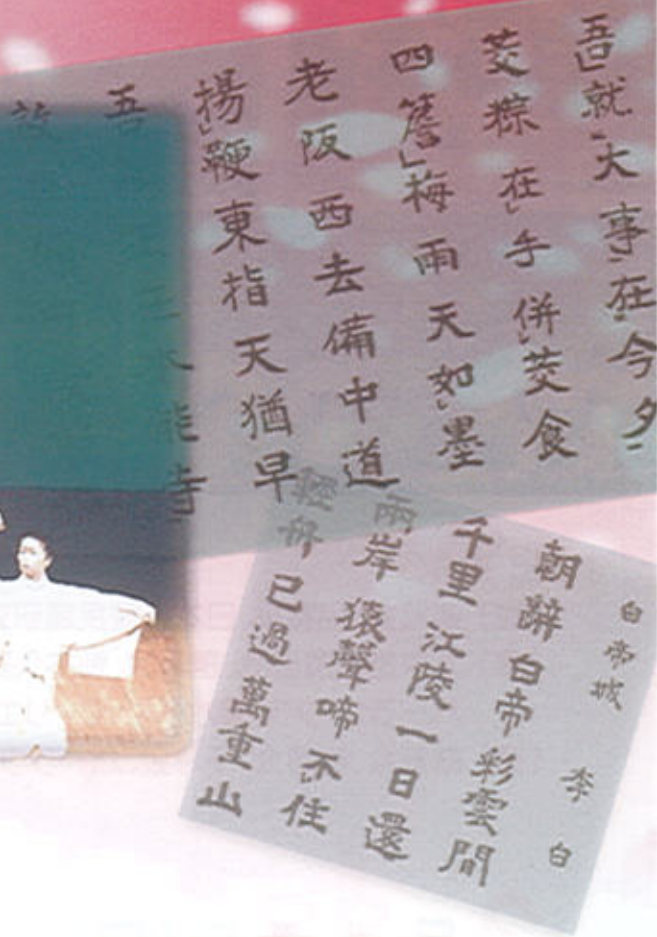 吾就大事在今夕
茭粽在手併茭食
四簷梅雨天如墨
老阪西去備中道
揚鞭東指天猶早
吾能寺
白帝城 李白
朝辭白帝彩雲間
千里江陵一日還
兩岸猿聲啼不住
輕舟已過萬重山